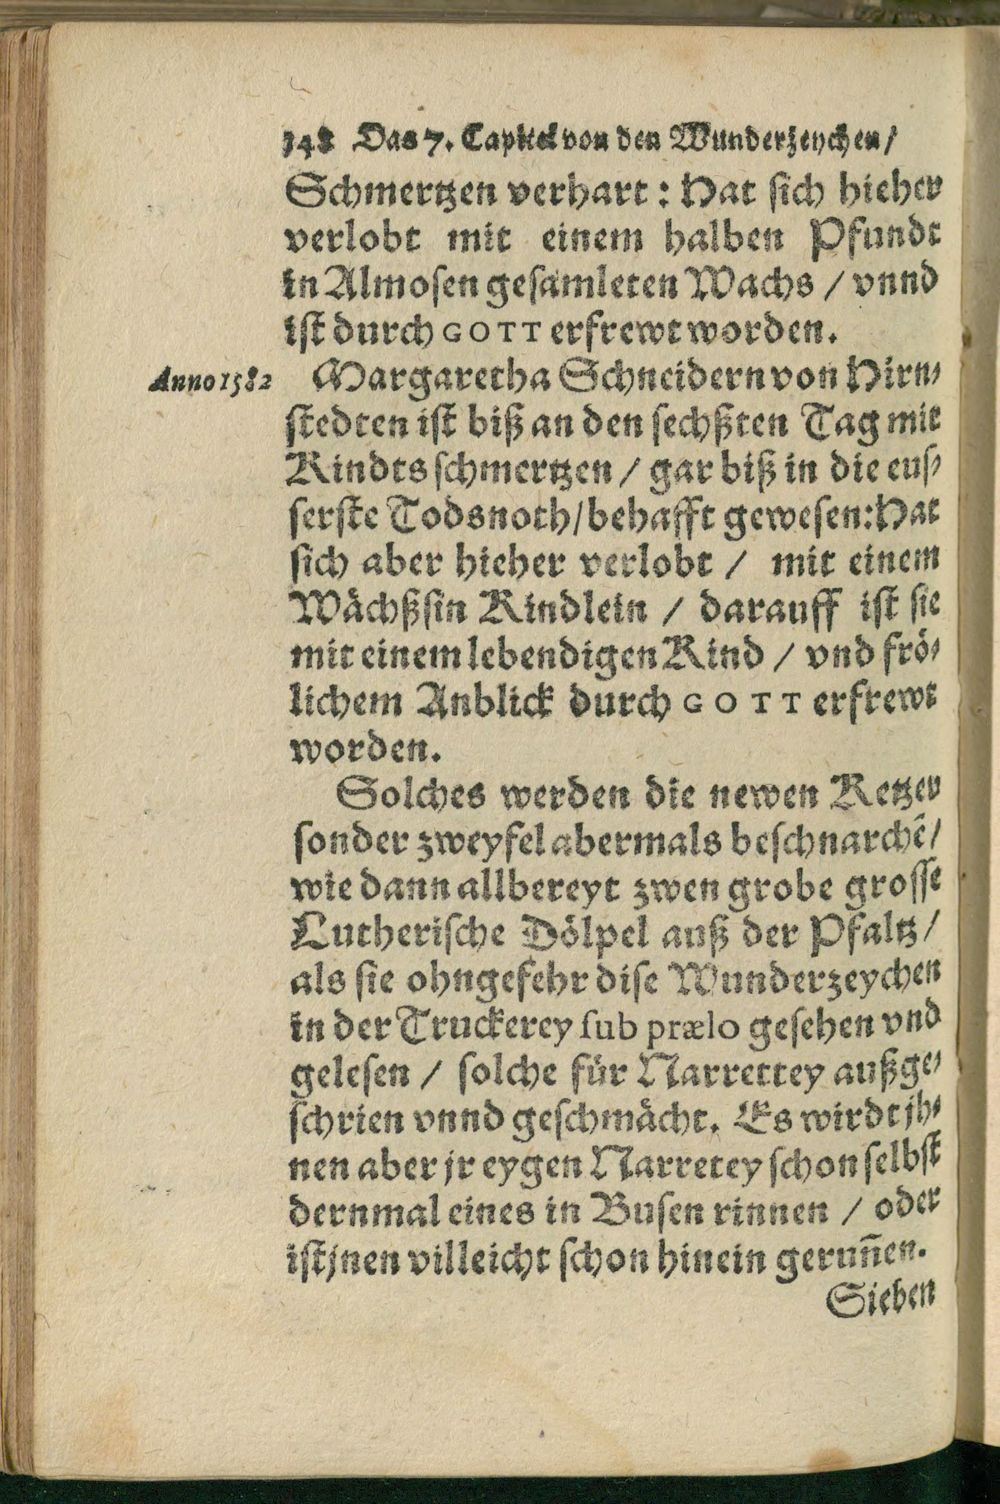 148 Das 7. Capitel von den Wunderzeychen /
Schmertzen verhart : Hat sich hieher
verlobt mit einem halben Pfundt
in Almosen gesamleten Wachs / vnnd
ist durch GOTT erfrewt worden.
Anno 1582 Margaretha Schneidern von Hirn⸗
stedten ist biß an den sechßten Tag mit
Kindtsschmertzen / gar biß in die eus⸗
serste Todsnoth / behafft gewesen: Hat
sich aber hieher verlobt / mit einem
Wächßsin Kindlein / darauff ist sie
mit einem lebendigen Kind / vnd frö⸗
lichem Anblick durch GOTT erfrewt
worden.
Solches werden die newen Ketzer
sonder zweyfel abermals beschnarchẽ /
wie dann allbereyt zwen grobe grosse
Lutherische Dölpel auß der Pfaltz /
als sie ohngefehr dise Wunderzeychen
in der Truckerey sub prælo gesehen vnd
gelesen / solche für Narrettey außge⸗
schrien vnnd geschmächt. Es wirdt jh⸗
nen aber jr eygen Narretey schon selbst
dernmal eines in Busen rinnen / oder
ist jnen villeicht schon hinein geruñen.
Sieben